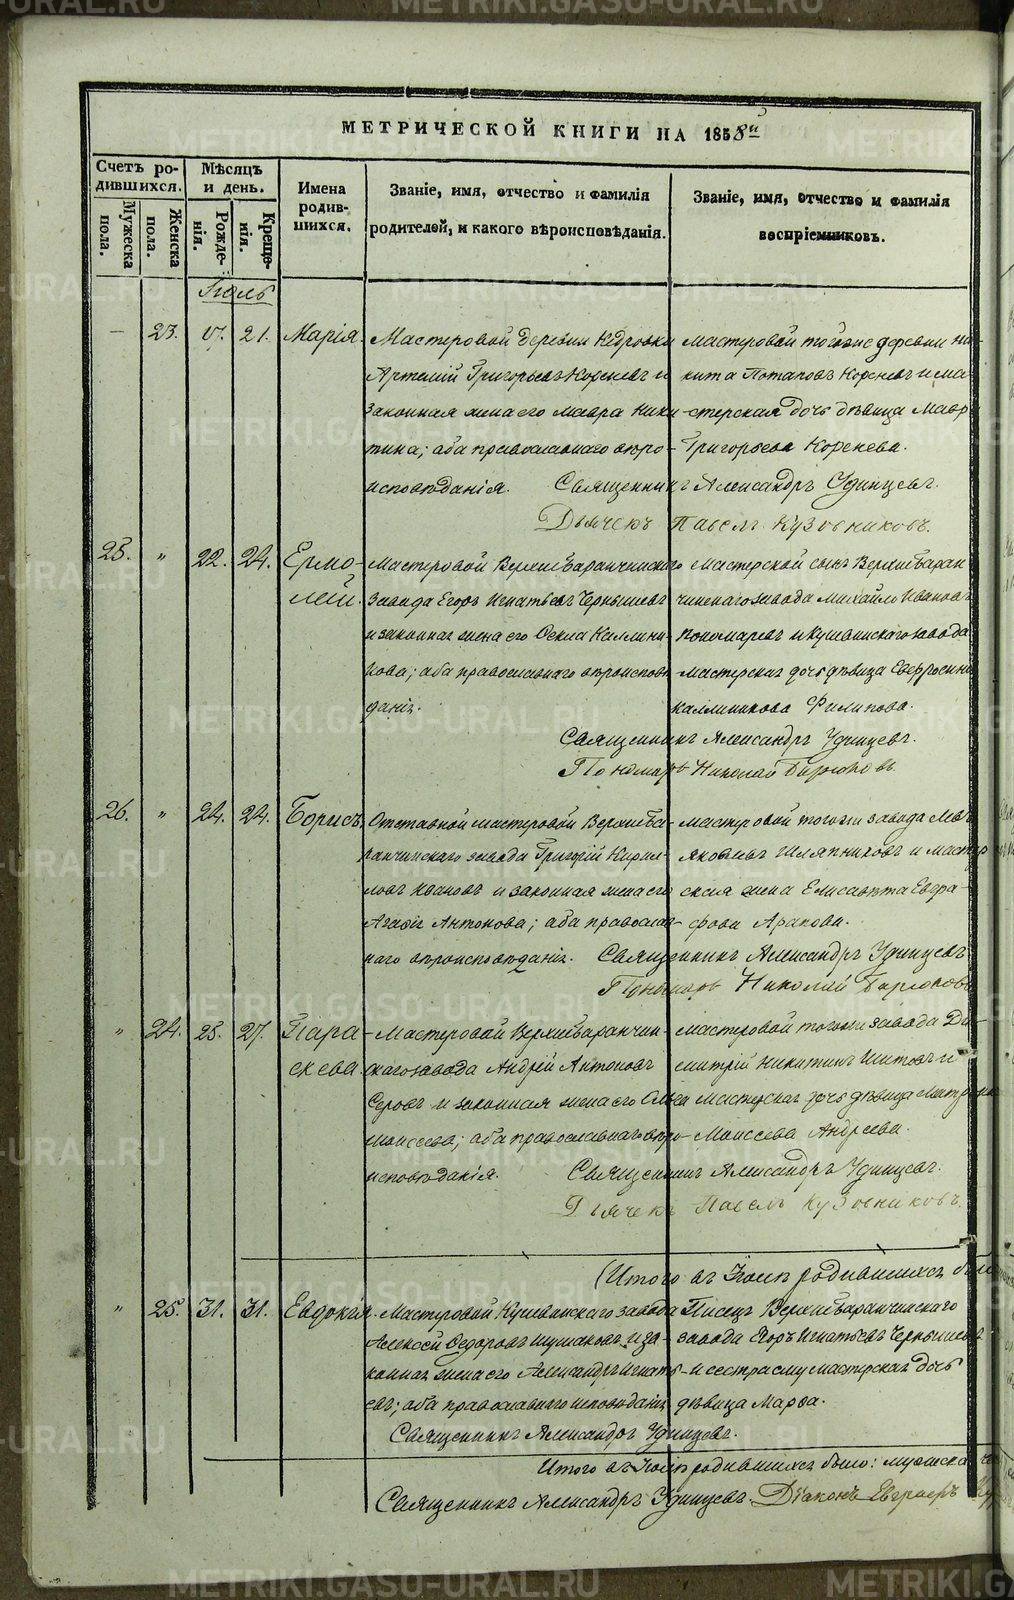 МЕТРИЧЕСКОЙ КНИГИ НА 1858й
Счетъ ро-
дившихся.
Мужеска
пола.
Женска
пола.
Мѣсяцъ
и день.
Рожде-
нія.
Креще-
нія.
Имена
родив-
шихся.
Званіе, имя, отчество и фамилія
родителей, и какого вѣроисповѣданія.
Званіе, имя, отчество и фамилія
воспріемниковъ.
Іюль
— 23. 17. 21. Марія.
Мастеровой деревни Кедровки
Артемій Григорьевъ Кореневъ и
законная жена его Мавра Ники-
тина; оба православнаго вѣро-
исповѣданія.
мастеровой тойже деревни Ни-
кита Потаповъ Кореневъ и ма-
стерская дочь дѣвица Мавра
Григорьева Коренева.
Священникъ Александръ Удинцевъ.
Дьячекъ Павелъ Кузовниковъ.
25. " 22. 24. Ермо-
лай.
Мастеровой Верхнебаранчинскаго
завода Егоръ Игнатьевъ Чернышевъ
и законная жена его Фекла Каллини-
кова; оба православнаго вѣроисповѣ-
данія.
Мастерской сынъ Верхнебаран-
чинскаго завода Михайло Ивановъ
Пономаревъ и Кушвинскаго завода
мастерская дочь дѣвица Евфросинія
Каллиникова Филипова.
Священникъ Александръ Удинцевъ.
Пономарь Николай Бирюковъ
26. " 24. 24. Борисъ.
Отставной мастеровой Верхнеба-
ранчинскаго завода Григорій Кирил-
ловъ Ивановъ и законная жена его
Агафія Антонова; оба православ-
наго вѣроисповѣданія.
Мастеровой тогоже завода Левъ
Яковлевъ Шляпниковъ и мастер
ская жена Елисавета Евгра-
фова Арапова.
Священникъ Александръ Удинцевъ
Пономарь Николай Бирюковъ
" 24. 25. 27. Пара-
скева.
Мастеровой Верхнебаранчин-
скаго завода Андрей Антоновъ
Серовъ и законная жена его Анна
Моисеева; оба православнаго вѣро-
исповѣданія.
Мастеровой тогоже завода Ди-
митрій Никитинъ Шитовъ и
мастерская дочь дѣвица Матрона
Моисеева Андреева.
Священникъ Александръ Удинцевъ.
Дьячекъ Павелъ Кузовниковъ.
(Итого въ Іюлѣ родившихся было
" 25. 31. 31. Евдокія.
Мастеровой Кушвинскаго завода
Алексей Федоровъ Шушаковъ и за-
конная жена его Александра Игнать-
ева; оба православнаго исповѣданія
Писецъ Верхнебаранчинскаго
завода Егоръ Игнатьевъ Чернышевъ
и сестра ему мастерская дочь
дѣвица Марѳа.
Священникъ Александръ Удинцевъ.
Итого въ Іюлѣ родившихся было: мужеска
Священникъ Александръ Удинцевъ Діаконъ Евграфъ
METRIKI.GASO-URAL.RU